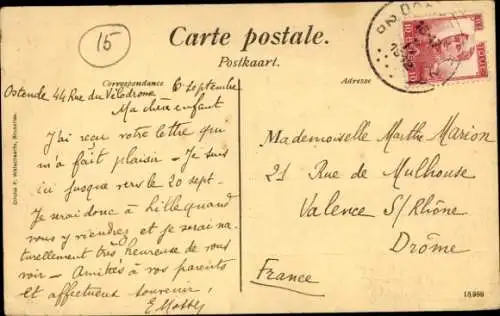 15
Carte postale.
Postkaart.
Correspondance
Adresse
Ostende 44 Rue du Vélodrome 6 septembre
Ma chère enfant
J'ai reçu votre lettre qui
m'a fait plaisir – Je suis
ici jusque vers le 20 sept.
Je serai donc à Lille quand
vous y viendrez et je serai na-
turellement très heureuse de vous
voir – Amitiés à vos parents
et affectueux souvenir,
Mademoiselle Marthe Marion
21 Rue de Mulhouse
Valence S/Rhône
Drôme
France
18,980